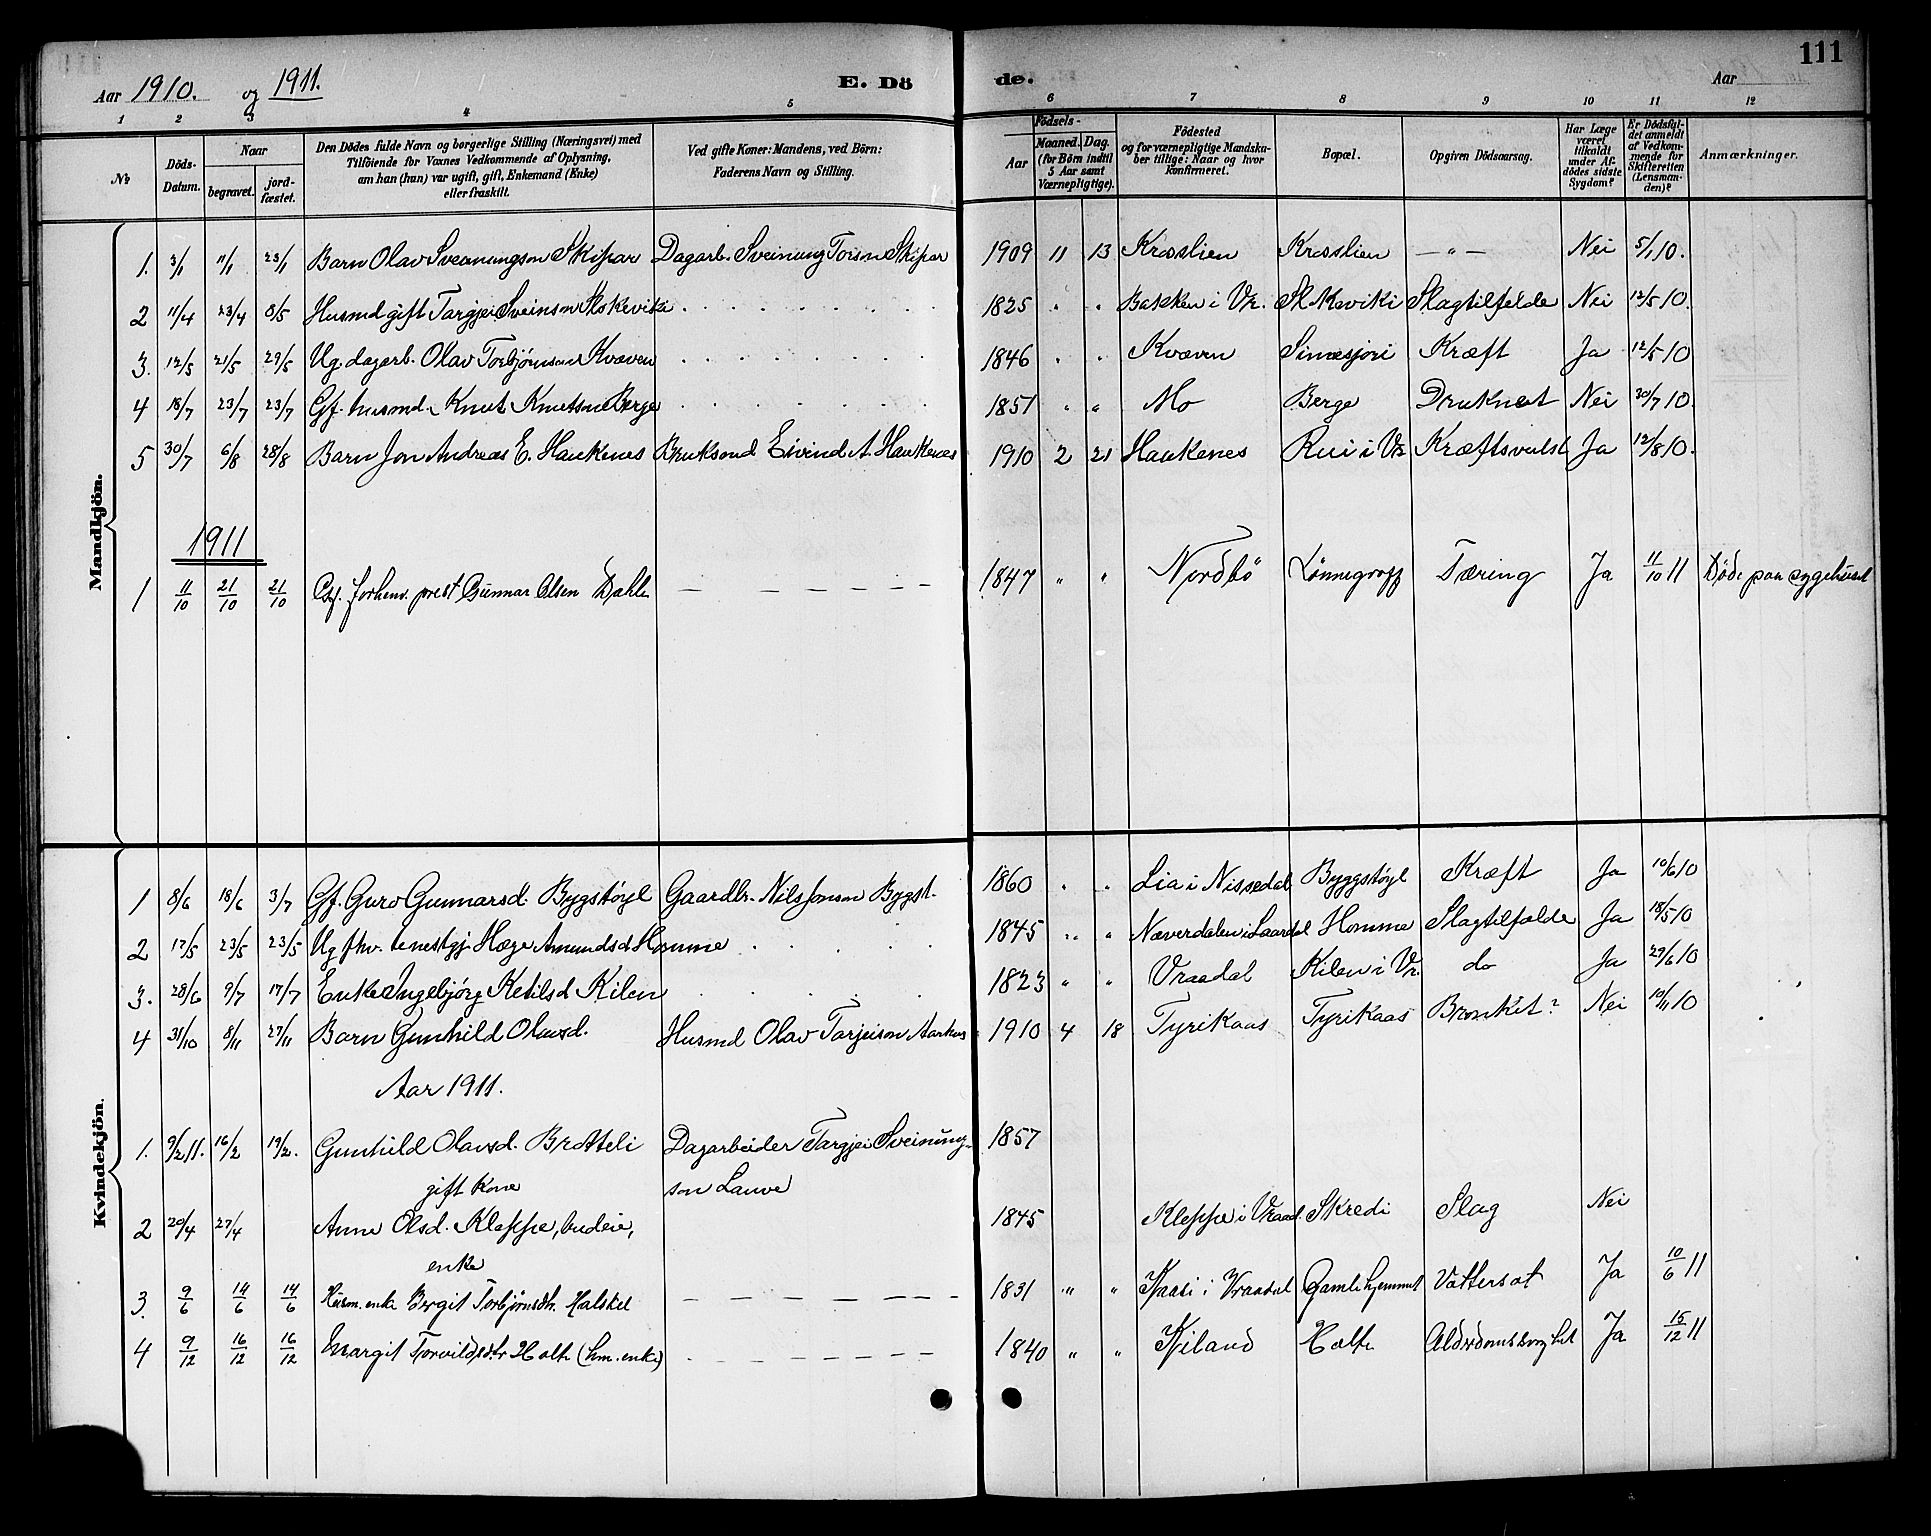 111
Aar 1910. og 1911.
E. Dö de.
Aar
1 2 3 4 5 6 7 8 9 10 11 12
№
Döds-Datum.
Naar
begravet.
jord-fæstet.
Den Dödes fulde Navn og borgerlige Stilling (Næringsvei) med
Tilföiende for Voxnes Vedkommende af Oplysning,
om han (hun) var ugift, gift, Enkemand (Enke)
eller fraskilt.
Ved gifte Koner: Mandens, ved Börn:
Faderens Navn og Stilling.
Födsels-
Aar
Maaned.
Dag.
(for Börn indtil
5 Aar samt
Værnepligtige).
Födested
og for værnepligtige Mandska-
ber tillige: Naar og hvor
konfirmeret.
Bopæl.
Opgiven Dödsaarsag.
Har Læge
været
tilkaldt
under Af-
dödes sidste
Sygdom?
Er Dödsfal-
det anmeldt
af Vedkom-
mende for
Skifteretten
(Lensman-
den)?
Anmærkninger.
Mandkjön.
1. 3/1 11/1 23/1 Barn Olav Sveinungson Skipar Dagarb. Sveinung Torson Skipar 1909 11 13 Krosslien Krosslien — „ — Nei 5/1 10.
2 11/4 23/4 8/5 Husmd gift Targjei Sveinson 1825 Bakken i Vr. Slagtilfelde Nei 12/5 10
3. 12/5 21/5 29/5 Ug. dagarb. Olav Torbjörnson Kvæven 1846 Kvæven Kræft Ja 12/5 10
4 18/7 23/7 23/7 Gf. husmd. Knut Knutson Berge 1851 Mo Berge Druknet Nei 20/7 10.
5 30/7 6/8 28/8 Barn Jon Andreas E. Haukenes Bruksmd Eivind A. Haukenes 1910 2 21 Haukenes Rui i Vr Kræftsvulst Ja 12/8 10.
1911
1 11/10 21/10 21/10 forhenv. prest Gunnar Olsen Dahle — — — — — — 1847 „ „ Nordbö Lönnegrav Tæring Ja 11/10 11 Döde paa sygehuset
Kvindekjön.
1 8/6 18/6 3/7 Gf. Guro Gunnarsd. Bygstöyl Gaardbr. Nils Jonson Bygst. 1860 Lia i Nissedal Byggstöyl Kræft Ja 10/6 10
2 17/5 23/5 23/5 Ug fhv. tenestgj. Hæge Amundsd Homme 1845 „ „ Næverdalen i Laardal Homme Slagtilfelde Ja 18/5 10
3. 28/6 9/7 17/7 Enke Ingebjörg Ketilsd Kilen 1823 „ „ Vraadal Kilen i Vr. do Ja 29/6 10
4 31/10 8/11 27/11 Barn Gunhild Olavsd. Husmd Olav Tarjeison Aarhus 1910 4 18 Tyrikaas Tyrikaas Bronkit? Nei 10/11 10
Aar 1911.
1. 9/2 11. 16/2 19/2. Gunhild Olavsd. Bratteli Dagarbeider Targjei Sveinung- 1857
gift kone son Lauve
2 20/4 27/4 Anne Olsd. Kleppe, budeie, 1845 Kleppe i Vraad. Skredi Slag Nei
enke
3. 9/6 14/6 14/6 Husm. enke Bergit Torbjörnsdtr. Halskil — — — — — — 1831 „ „ Kaasi i Vraadal Gamlehjemmet Vattersot Ja 10/6 11
4 9/12 16/12 16/12 Margit Torvildsdtr Holte (hm. enke) — — — — — — 1840 „ „ Kjiland Holte Alderdomssvaghet Ja 15/12 11